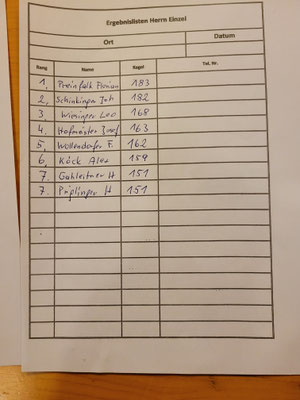 Ergebnislisten Herrn Einzel
Ort Datum
Rang Name Kegel Tel. Nr.
1, Preinfalk Florian 183
2, Schinkinger 182
3 Wieninger Leo 168
4. Hofmeister Josef 163
5, Wollendorfer F. 162
6, Köck Alex 159
7. Gahleitner H 151
7. H 151